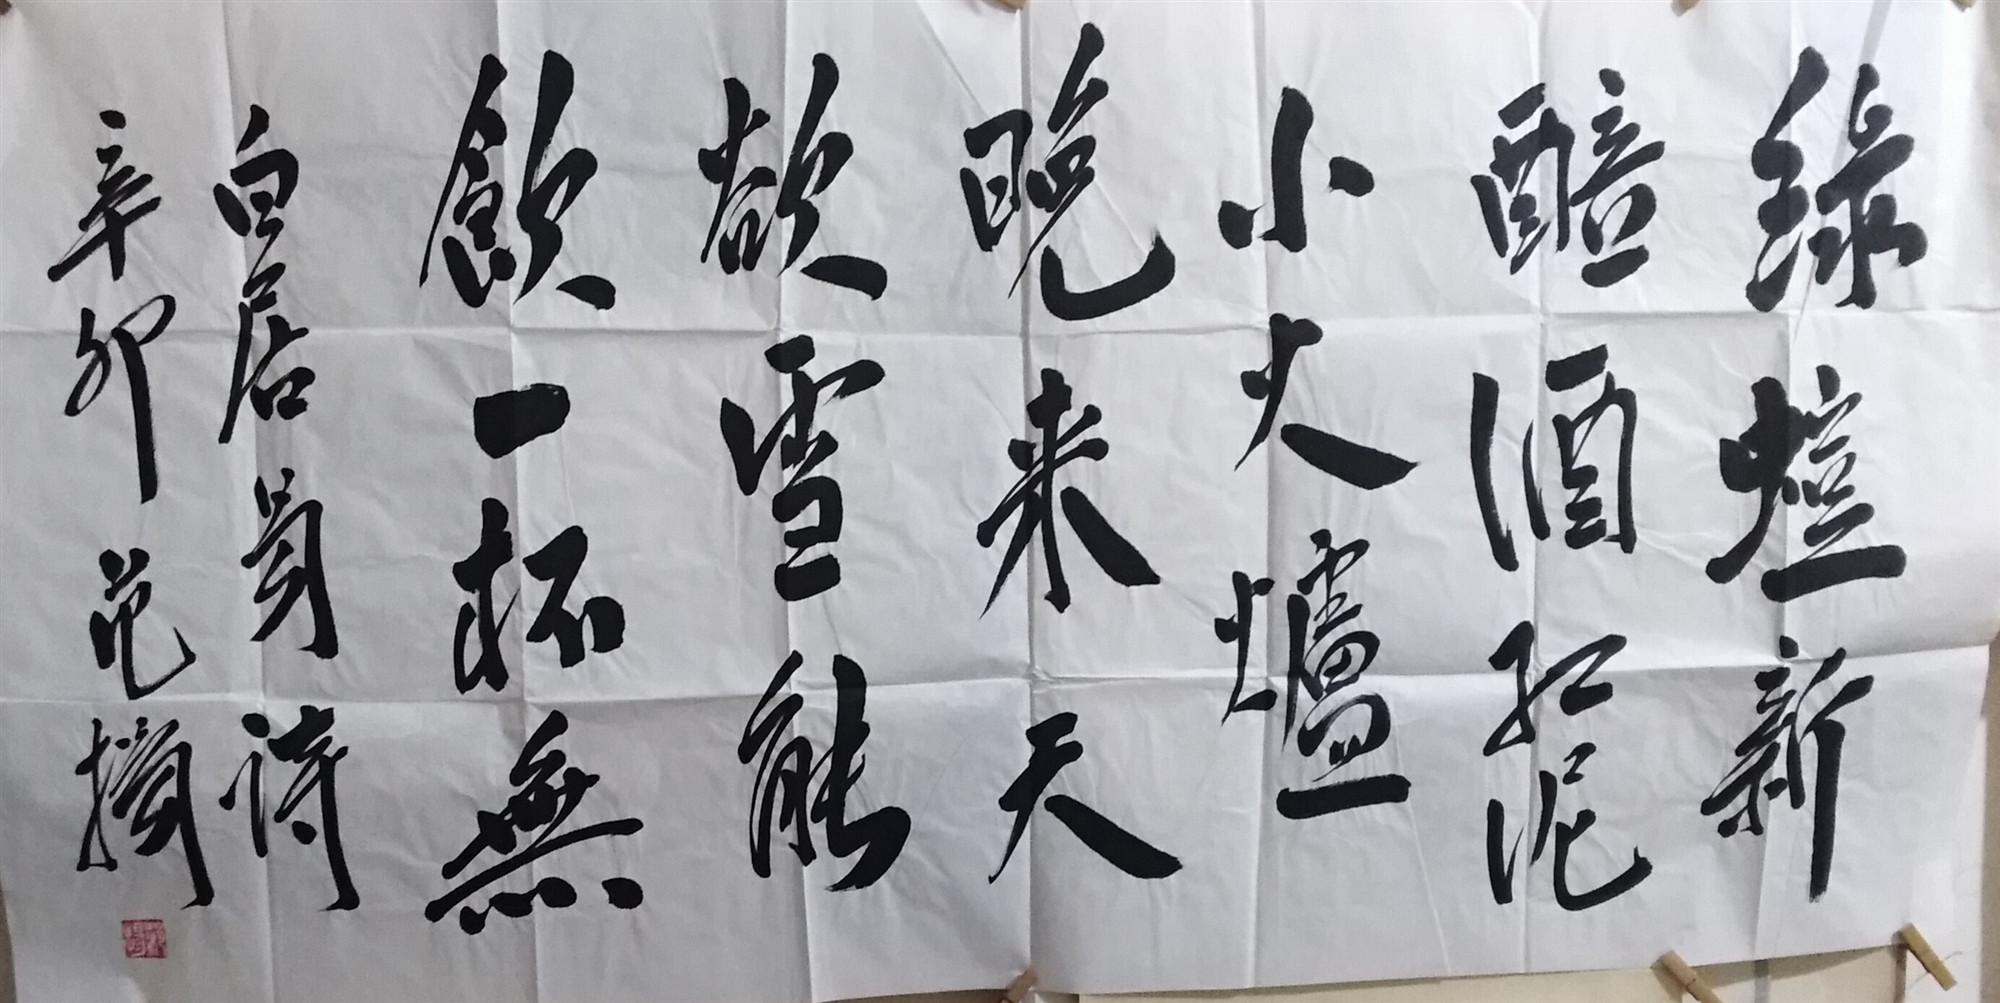 綠螘新
醅酒紅泥
小火爐
晚来天
欲雪能
飲一杯無
白居易诗
辛卯 范